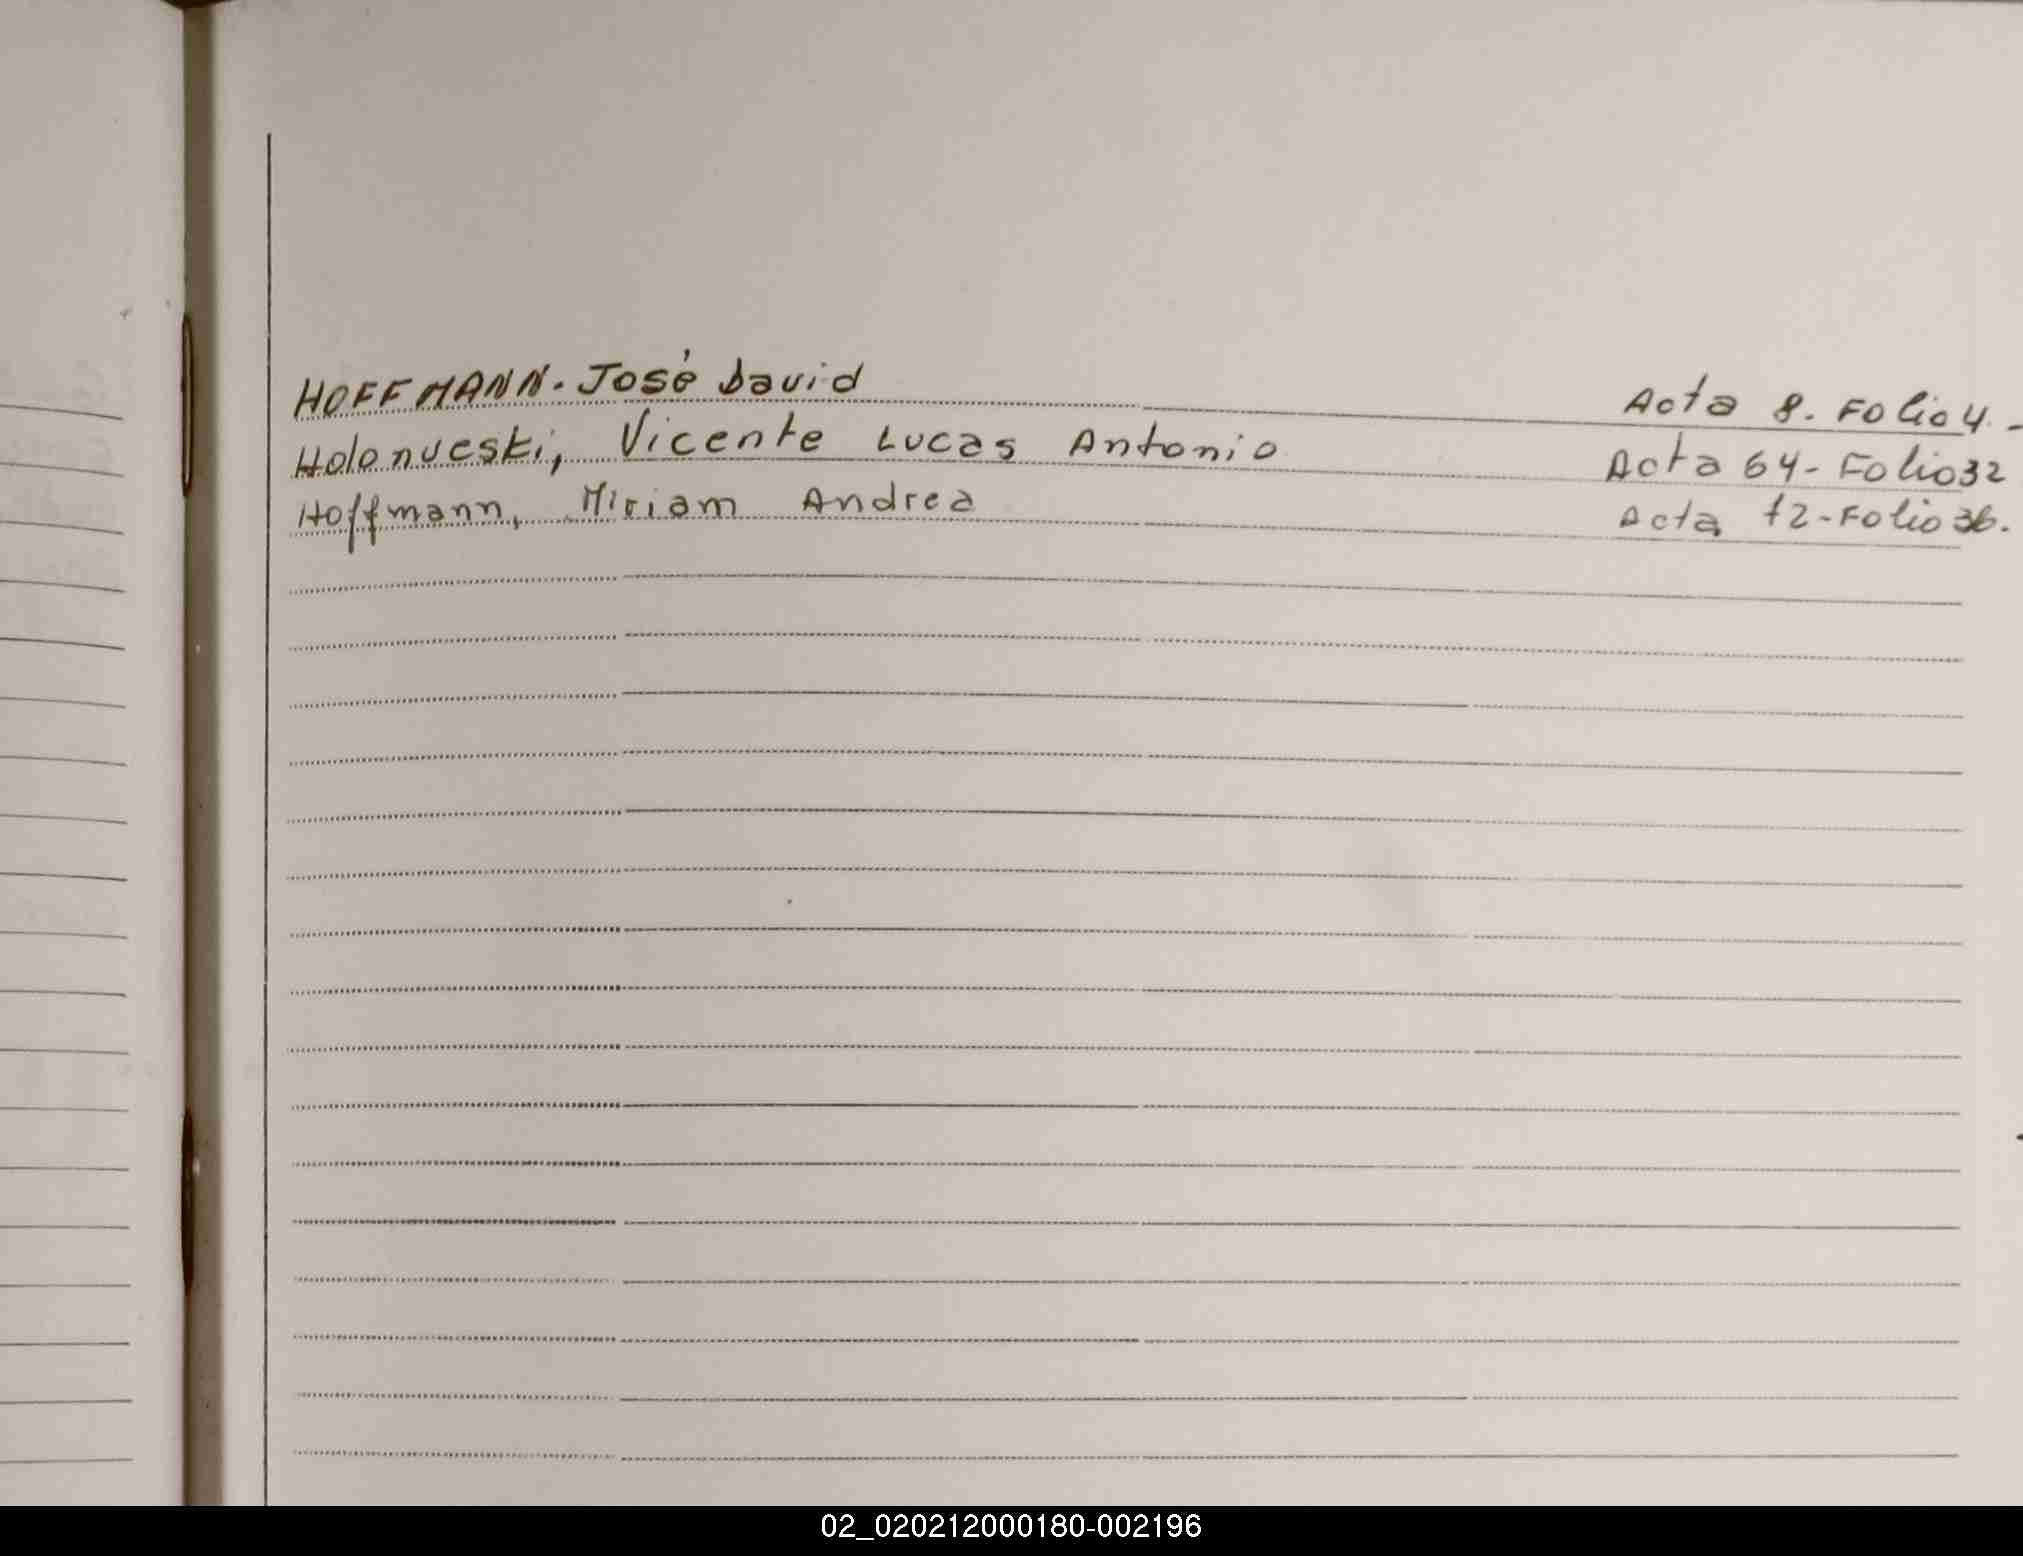 HOFFMANN. José David Acta 8. Folio 4. -
Holonueski, Vicente Lucas Antonio Acta 64 - Folio 32
Hoffmann, Miriam Andrea Acta 72 - Folio 36.
02_020212000180-002196